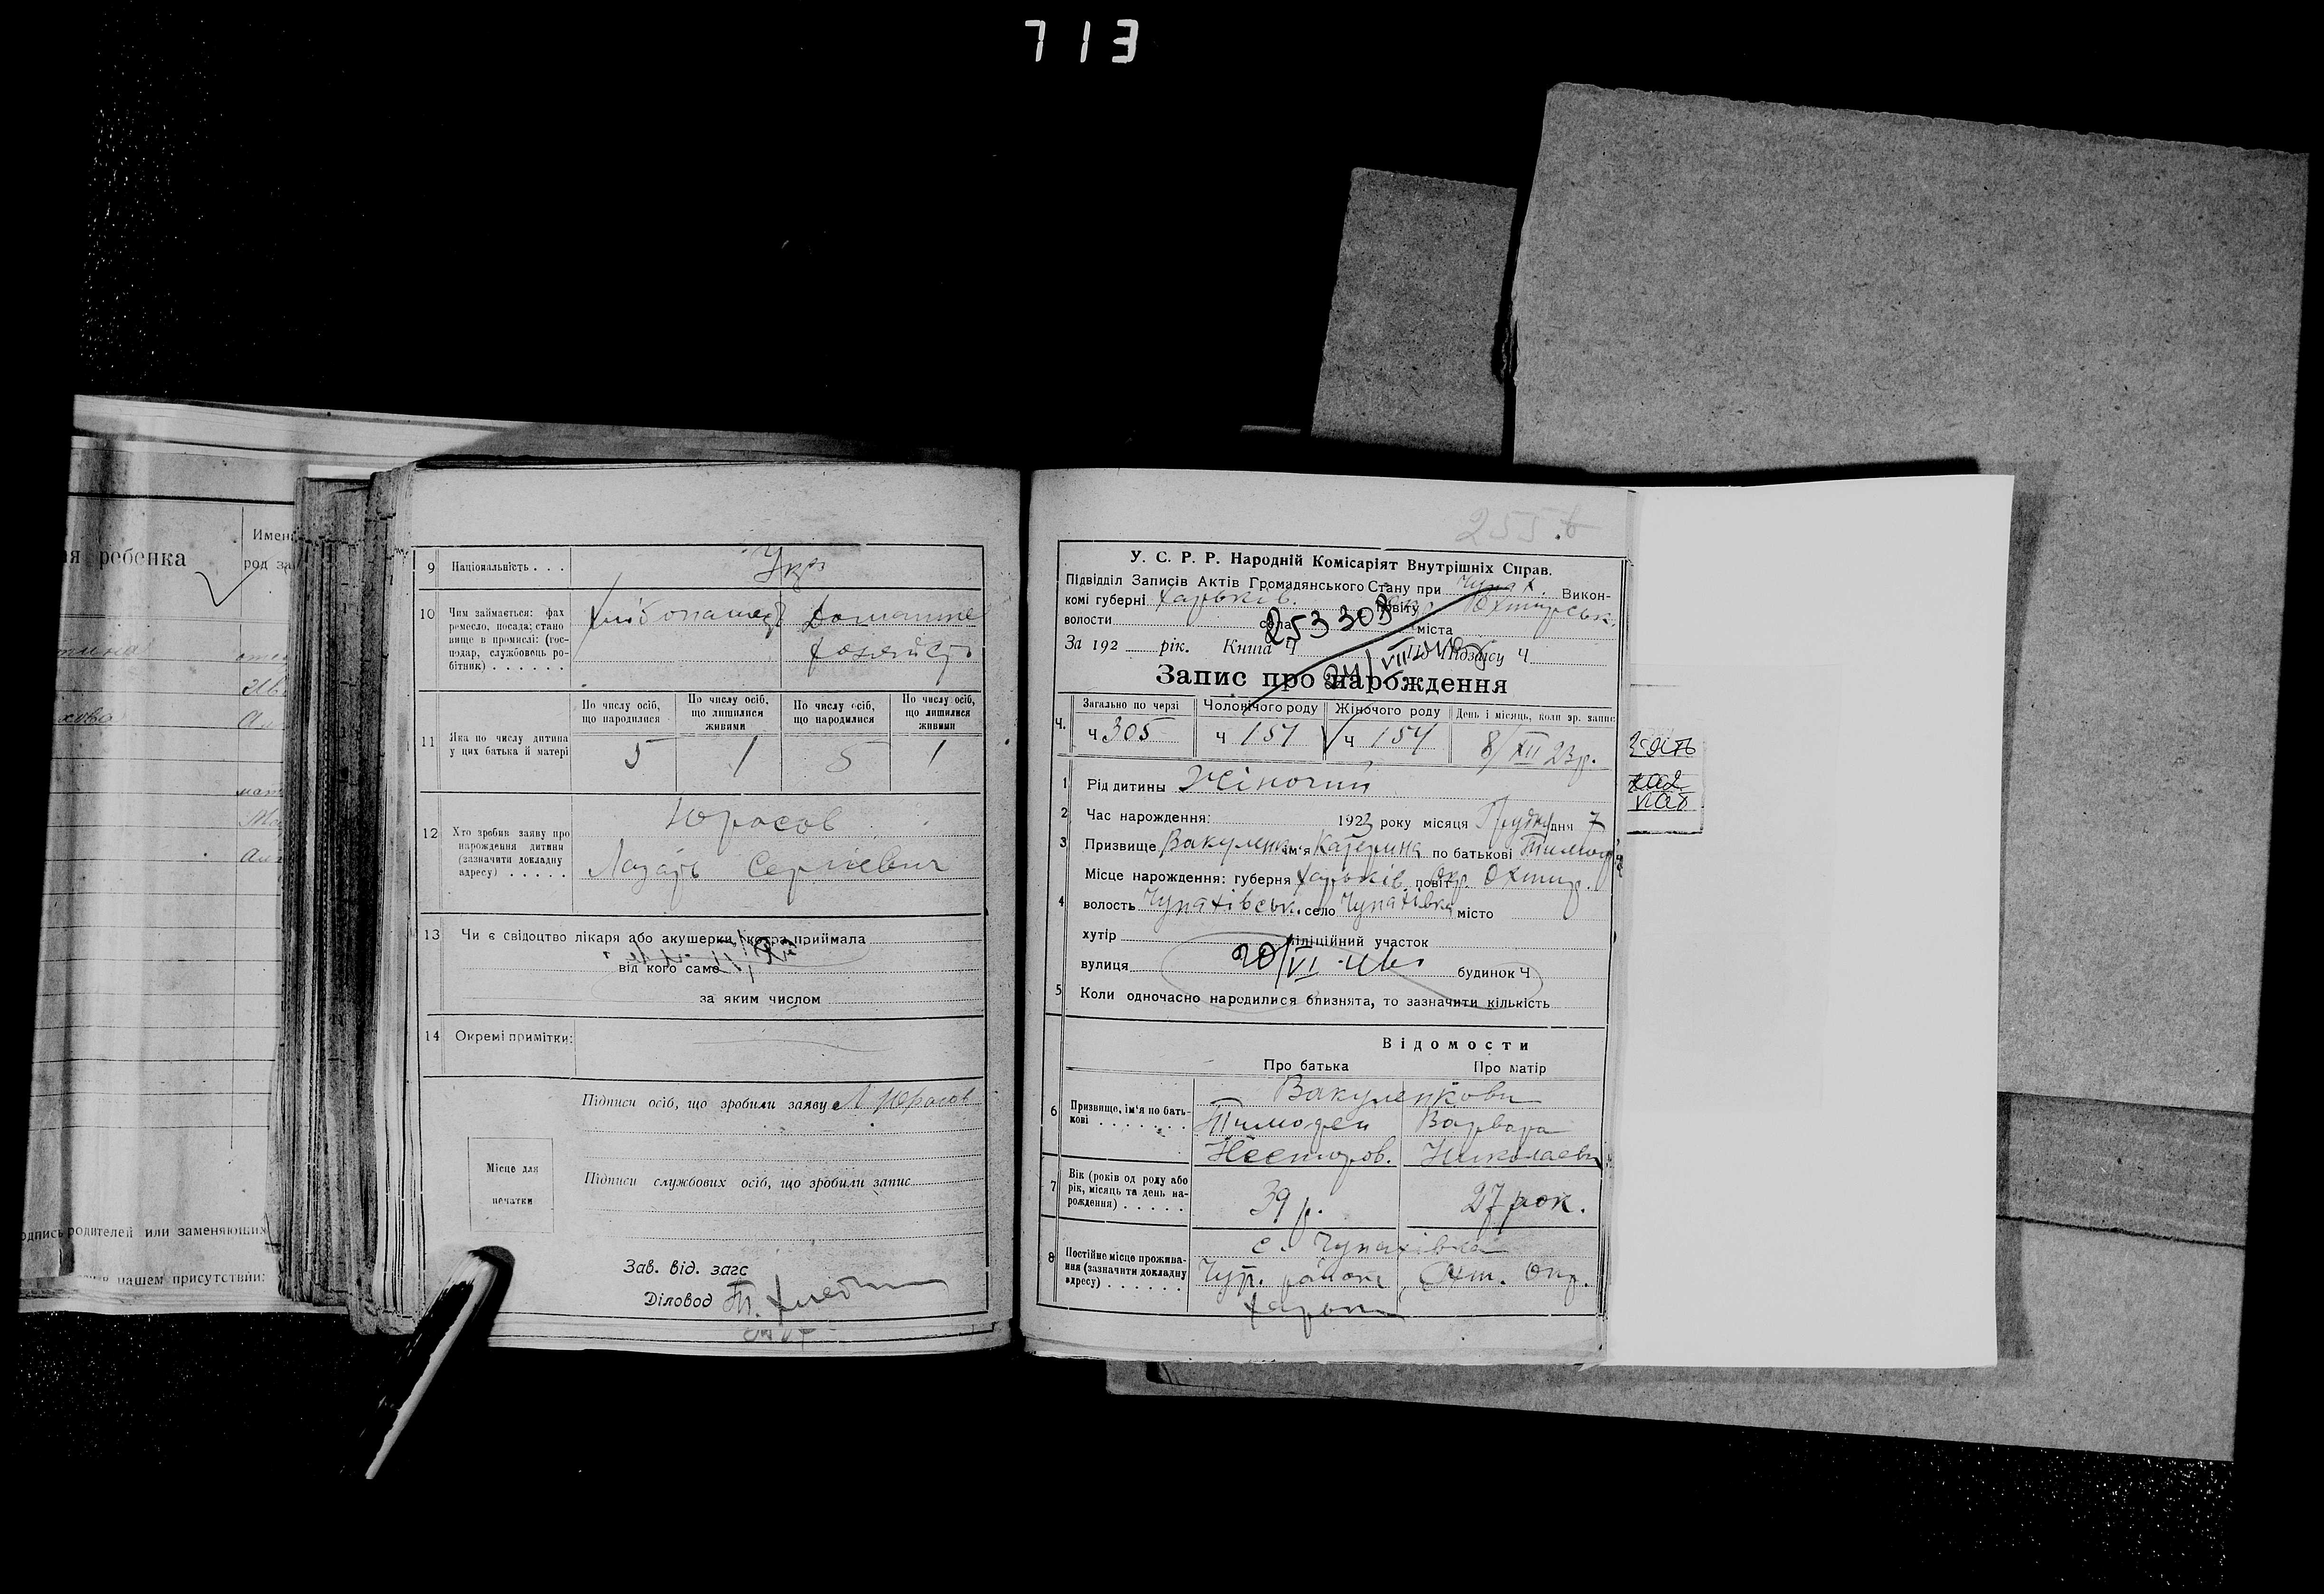 713
Имен
ая ребенка
род за
9 Національність . . . Укр
10 Чим займається: фах
ремесло, посада; стано
вище в промислі: (гос-
подар, службовець ро-
бітник) . . . . . .
Хлібопашець Домашнє
хозяйст
11 Яка по числу дитина
у цих батька й матері
По числу осіб,
що народилися
По числу осіб,
що лишилися
живими
По числу осіб,
що народилися
По числу осіб,
що лишилися
живими
5 1 5 1
12 Хто зробив заяву про
нарождення дитини
(зазначити докладну
адресу) . . . . .
Юрасов
Лазарь Сергіевич
13 Чи є свідоцтво лікаря або акушерки, котра приймала
від кого саме
за яким числом
14 Окремі примітки:
Підписи осіб, що зробили заяву Л Юрасов
Місце для
печатки
Підписи службових осіб, що зробили запис
Зав. від. загс
Діловод
родителей или заменяющих
нашем присутствии:
255
У. С. Р. Р. Народній Комісаріят Внутрішніх Справ.
Підвідділ Записів Актів Громадянського Стану при Чупах. Викон-
комі губерні Харьків. повіту Охтирськ.
волости села міста
253303
За 192 рік. Книга Ч
Запис про нарождення
Ч.
Загально по черзі
Чоловічого роду
Жіночого роду
День і місяць, коли зр. запис
ч 305 ч 151 ч 154 8/XII 23р.
1 Рід дитины Жіночий
2 Час нарождення: 1923 року місяця Грудня дня 7
3 Призвище Вакуленко ім'я Катерина по батькові Тимоф
Місце нарождення: губерня Харьків повіт Окр. Охтир.
4 волость Чупахівськ. село Чупахівка місто
хутір міліційний участок
вулиця 20/VI будинок Ч
5 Коли одночасно народилися близнята, то зазначити кількість
Відомости
Про батька Про матір
6 Призвище, ім'я по бать-
кові . . . . . . .
Вакуленкови
Тимофей Варвара
Несторов. Николаевн
7 Вік (років од роду або
рік, місяць та день на-
рождення) . . . . .
39 р. 27 рок.
8 Постійне місце прожива-
ння (зазначити докладну
адресу) . . . . .
с. Чупахівка
Чуп. района, Охт. Окр.
Харьк